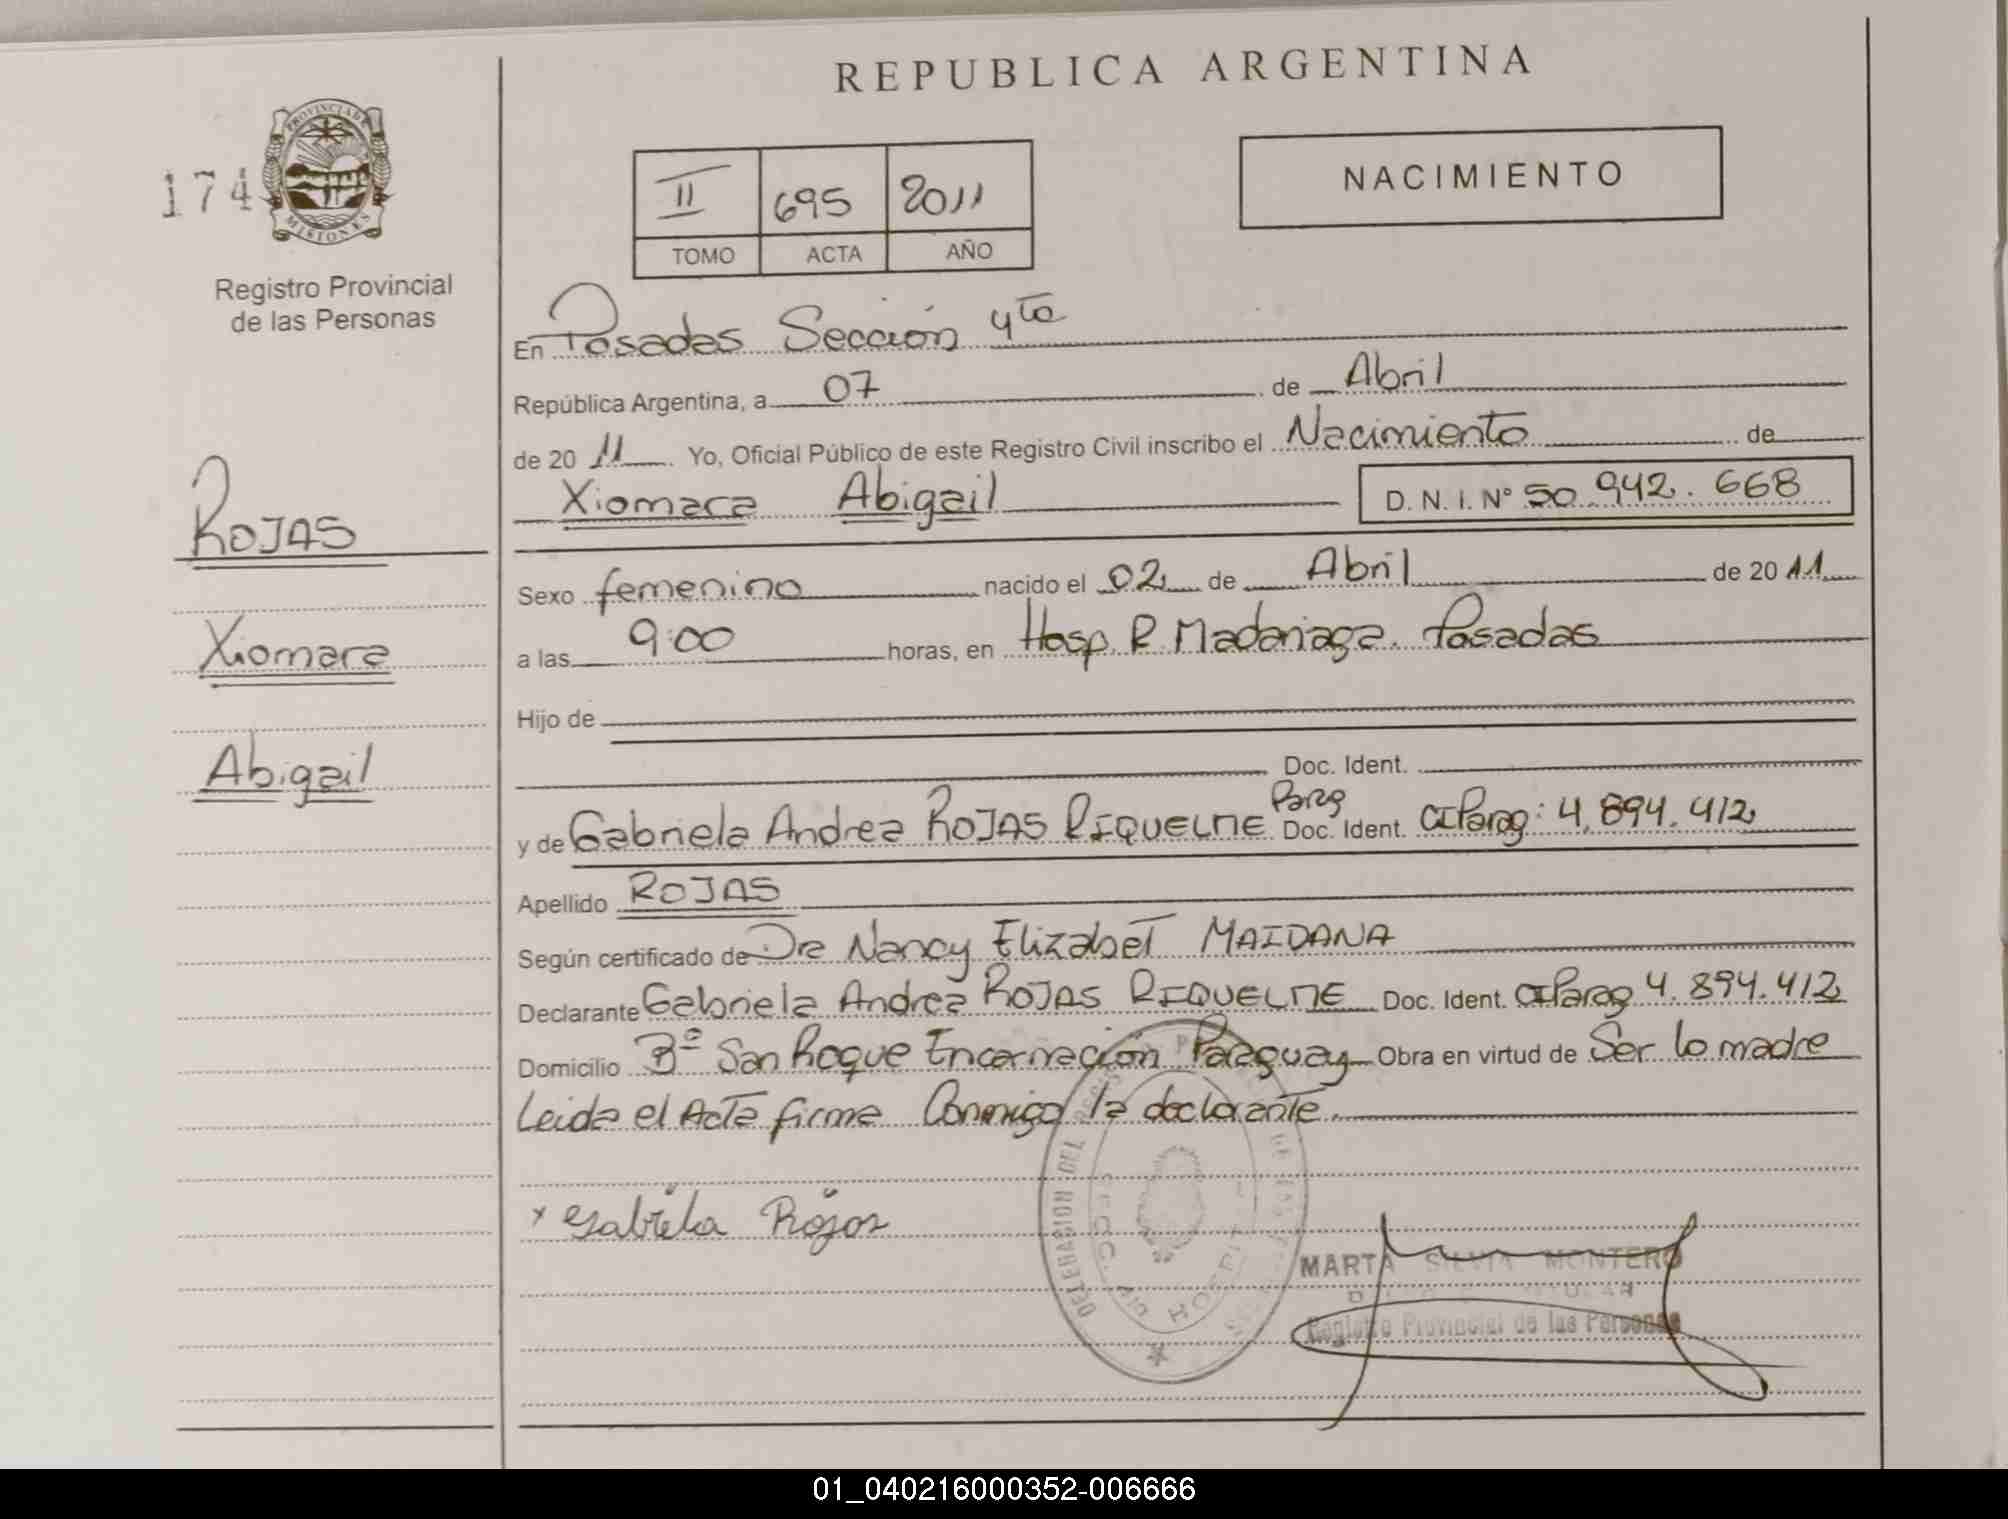 REPUBLICA ARGENTINA
174
PROVINCIA DE
MISIONES
Registro Provincial
de las Personas
II 695 2011
TOMO ACTA AÑO
NACIMIENTO
ROJAS
Xiomara
Abigail
En Posadas Sección 4ta
República Argentina, a 07 de Abril
de 20 11 Yo, Oficial Público de este Registro Civil inscribo el Nacimiento de
Xiomara Abigail D. N. I. Nº 50.942.668
Sexo femenino nacido el 02 de Abril de 20 11
a las 9:00 horas, en Hosp. R Madariaga. Posadas
Hijo de
Doc. Ident.
Parg
y de Gabriela Andrea ROJAS RIQUELME Doc. Ident. CI Parag: 4.894.412
Apellido ROJAS
Según certificado de Dra Nancy Elizabet MAIDANA
Declarante Gabriela Andrea ROJAS RIQUELME Doc. Ident. CI Parag 4.894.412
Domicilio Bº San Roque Encarnación Paraguay Obra en virtud de Ser la madre
Leida el Acta firma Conmigo la declarante.
x Gabriela Rojas
DELEGACION DEL
SECC. 4ta HOSPITAL
MARTA SILVIA MONTERO
Registro Provincial de las Personas
01_040216000352-006666